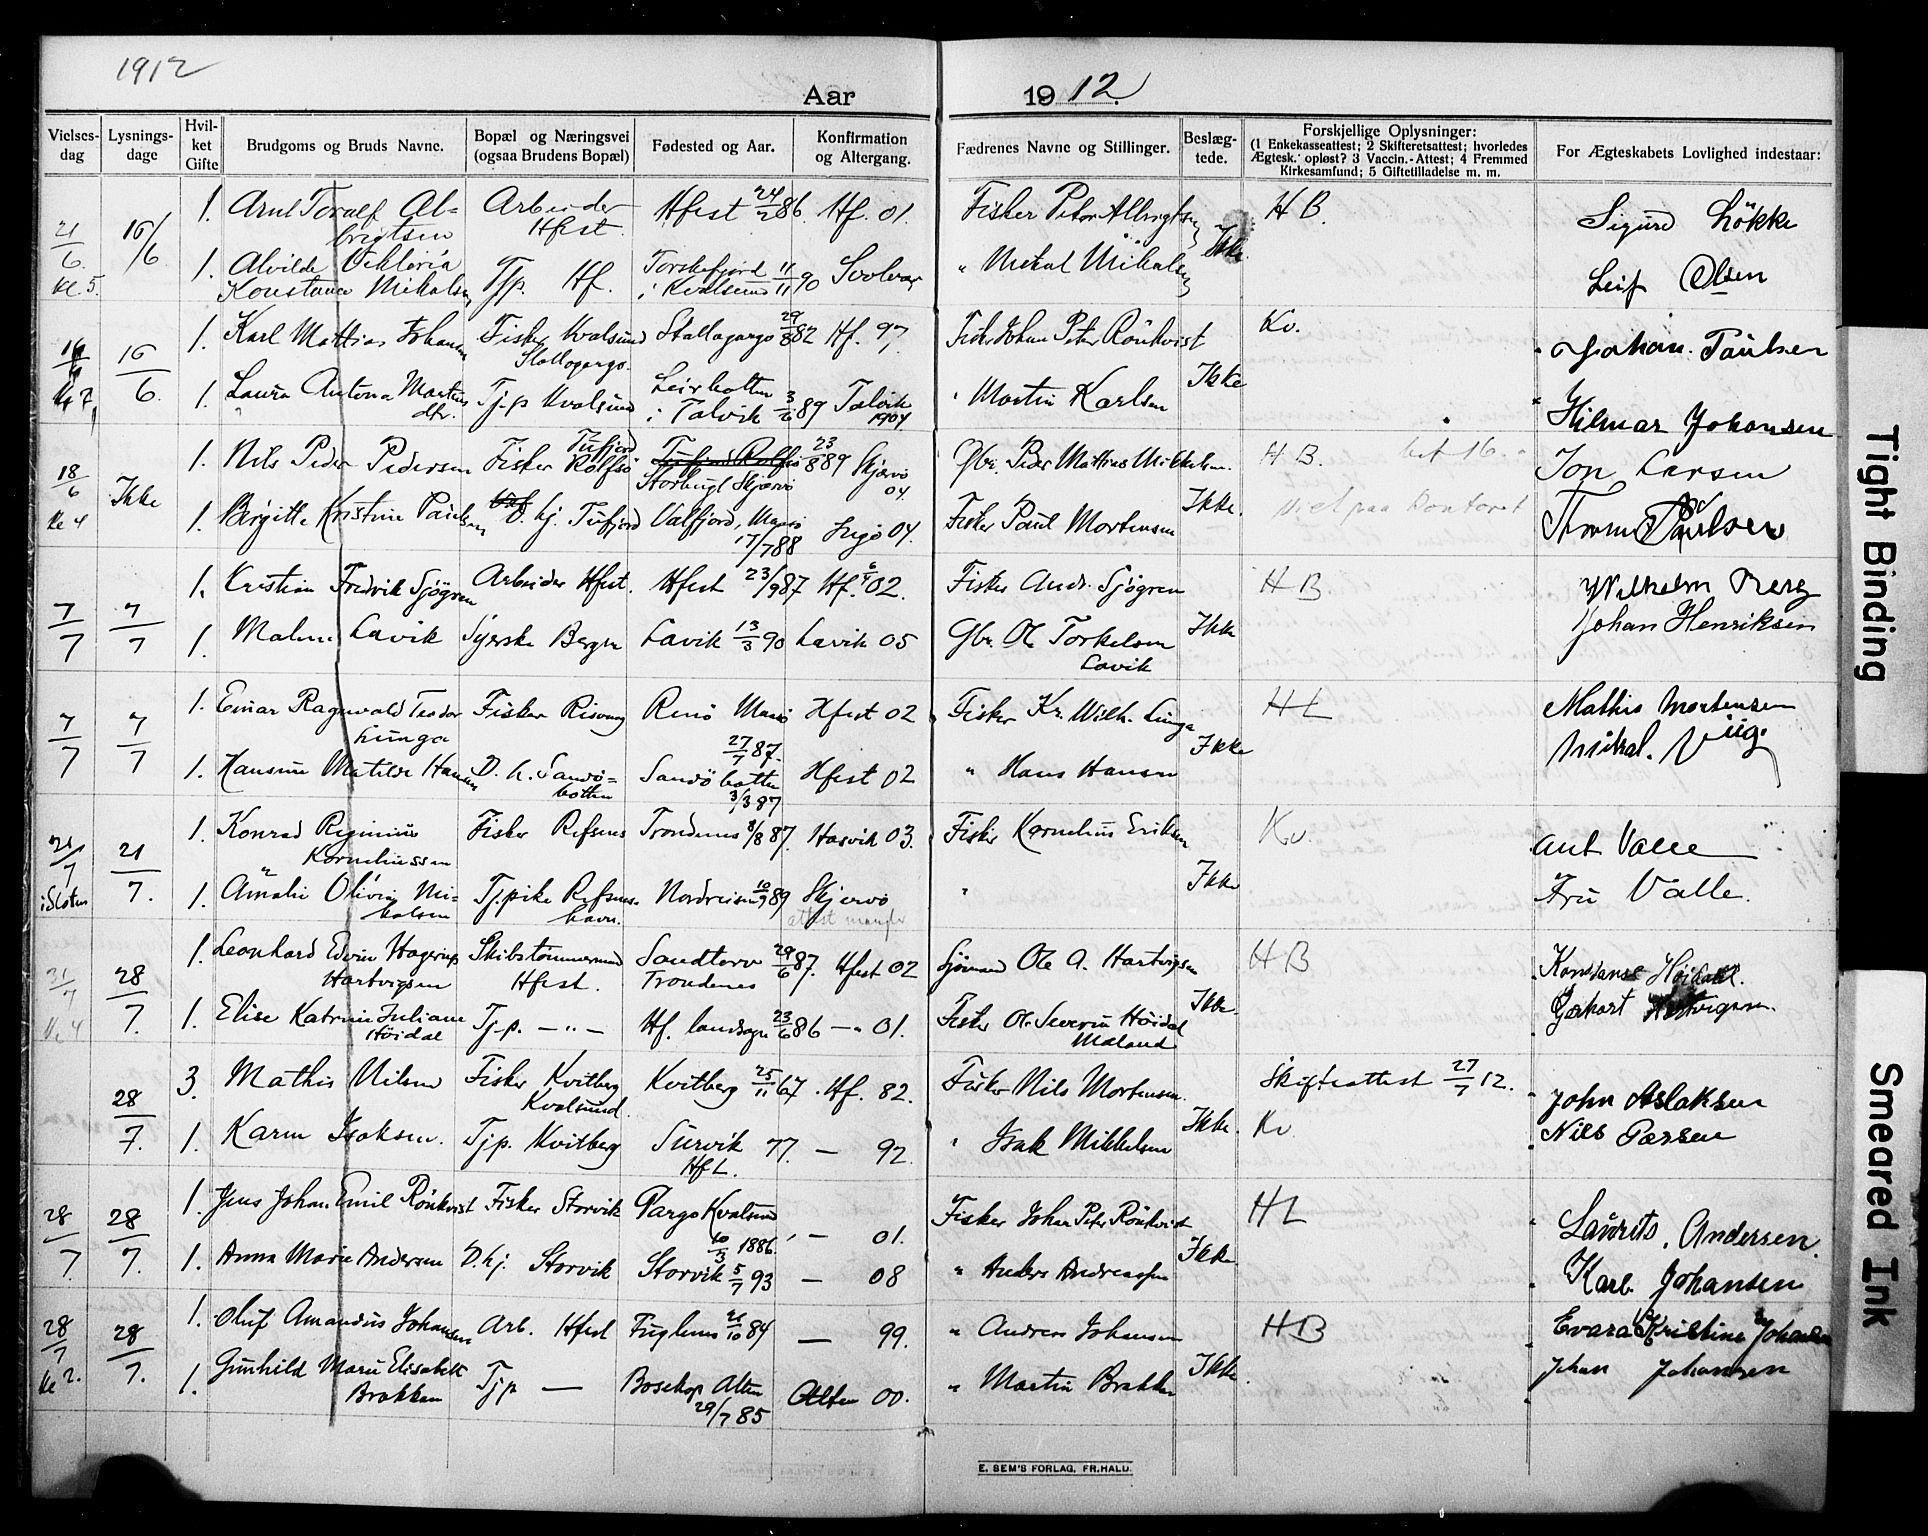 1912
Aar 1912.
Vielses-dag | Lysnings-dage | Hvil-ket Gifte | Brudgoms og Bruds Navne. | Bopæl og Næringsvei (ogsaa Brudens Bopæl) | Fødested og Aar. | Konfirmation og Altergang. | Fædrenes Navne og Stillinger. | Beslæg-tede. | Forskjellige Oplysninger: (1 Enkekasseattest; 2 Skifteretsattest; hvorledes Ægtesk. opløst? 3 Vaccin.-Attest; 4 Fremmed Kirkesamfund; 5 Giftetilladelse m. m. | For Ægteskabets Lovlighed indestaar:
21/6 Kl. 5. | 16/6 | 1. | Arnt Toralf Al-brigtsen | Arbeider Hfest. | Hfest 24/2 86. | Hf. 01. | Fisker Peter Albrigtsen | Ikke. | H B. | Sigurd Løkke
1. | Alvilde Konstance Mikalsen | Tjp. Hf. | Torskefjord i Kvalsund 11/11 90 | Svolvær | " Mikal Mikalsen | Leif Olsen
16/6 Kl 7 | 16/6. | 1. | Karl Mattias Johansen | Fisker Kvalsund Stallogargo. | Stallogargo 29/8 82 | Hf. 97. | Fisker Johan Peter Rönkvist | Ikke | Kv. | Johan. Paulsen
1. | Laura Antona Martins dtr. | Tj.p Kvalsund | Leirbotten i Talvik 3/6 89 | Talvik 1904 | " Martin Karlsen | Hilmar Johansen
18/6 Kl 4 | Ikke | 1. | Nils Peder Pedersen | Fisker Tufjord Rolfsö | Skjærvö 23/8 89 | Skjærvö 04. | Gbr. Peder Mathias Mikkelsen. | Ikke. | H B. | Jon Larsen
1. | Birgitte Kristine Paulsen | D. hj. Tufjord | Valfjord, Masö 17/7 88 | Ingö 04. | Fisker Paul Mortensen | Viet paa Kontoret | Paulsen
7/7 | 7/7 | 1. | Kristian Fredrik Sjögren | Arbeider Hfest. | Hfest 23/9 87 | Hf. 02. | Fisker Andr. Sjögren | Ikke | H B. | Wilhelm Berg
1. | Malene Lavik | Syerske Bergen | Lavik 13/3 90 | Lavik 05 | Gbr. Ole Torkelsen Lavik | Johan Henriksen
7/7 | 7/7 | 1. | Einar Ragnvald Teodor Lunga | Fisker Risvaag | Rensö Masö 27/7 87. | Hfest 02 | Fisker Kr. Wilh. Lunga | Ikke | H L | Mathis Mortensen
1. | Hansine Matilde Hansen | D. h. Sandö-botten | Sandöbotten 3/3 87 | Hfest 02 | " Hans Hansen | Mikal. Viig.
21/7 | 21/7. | 1. | Konrad Reginius Korneliussen | Fisker Refsnes | Trondenes 8/8 87. | Hasvik 03. | Fisker Kornelius Eriksen | Ikke | Kv. | Ant Valle
1. | Amalie Olivia Mi-kalsen | Tj.pike Refsnes-havn. | Nordreisen 10/9 89 | Skjervö attest mangler | " | Fru Valle.
31/7 Kl 4 | 28/7. | 1. | Leonhard Edvin Hagerup Hartvigsen | Skibstömmermand Hfest. | Sandtorv Trondenes 29/6 87. | Hfest 02 | Sjömand Ole A. Hartvigsen | Ikke. | H B | Konstanse Höidahl.
1. | Elise Katrine Juliane Höidal | Tj.p. — " — | Hf. landsogn 23/6 86 | — " 01. | Fisker Ole Severin Höidal Maland | Gerhart Hartvigsen.
28/7. | 3. | Mathis Nilsen | Fisker Kvitberg Kvalsund. | Kvitberg 25/11 67 | Hf. 82. | Fisker Nils Mortensen. | Ikke. | Skifteattest 27/7 12. | John Aslaksen
1. | Karen Isaksen. | Tjp. Kvitberg | Survik Hf L. 77. | — 92. | " Isak Mikkelsen | Kv | Nils Persen
28/7. | 28/7. | 1. | Jens Johan Emil Rönkvist | Fisker Storvik | Gargo Kvalsund 10/3 1886. | " — 01. | Fisker Johan Peter Rönkvist | Ikke | H L | Laurits. Andersen.
1. | Anna Marie Andersen | D. hj. Storvik | Storvik 5/7 93 | — 08 | " Anders Andreassen | Karl. Johansen
28/7 Kl 2. | 28/7. | 1. | Oluf Amandus Johansen | Arb. Hfest | Fuglenes 21/10 84 | — 99. | " Andreas Johansen | Ikke. | H B | Evara Kristine Johansen
1. | Gunhild Marie Elisabeth Brakken | Tjp — | Bosekop Alten 29/7 85 | Alten 00. | " Martin Brakken | Johan Johansen
E. SEM'S FORLAG, FR.HALD.
Tight Binding
Smeared Ink